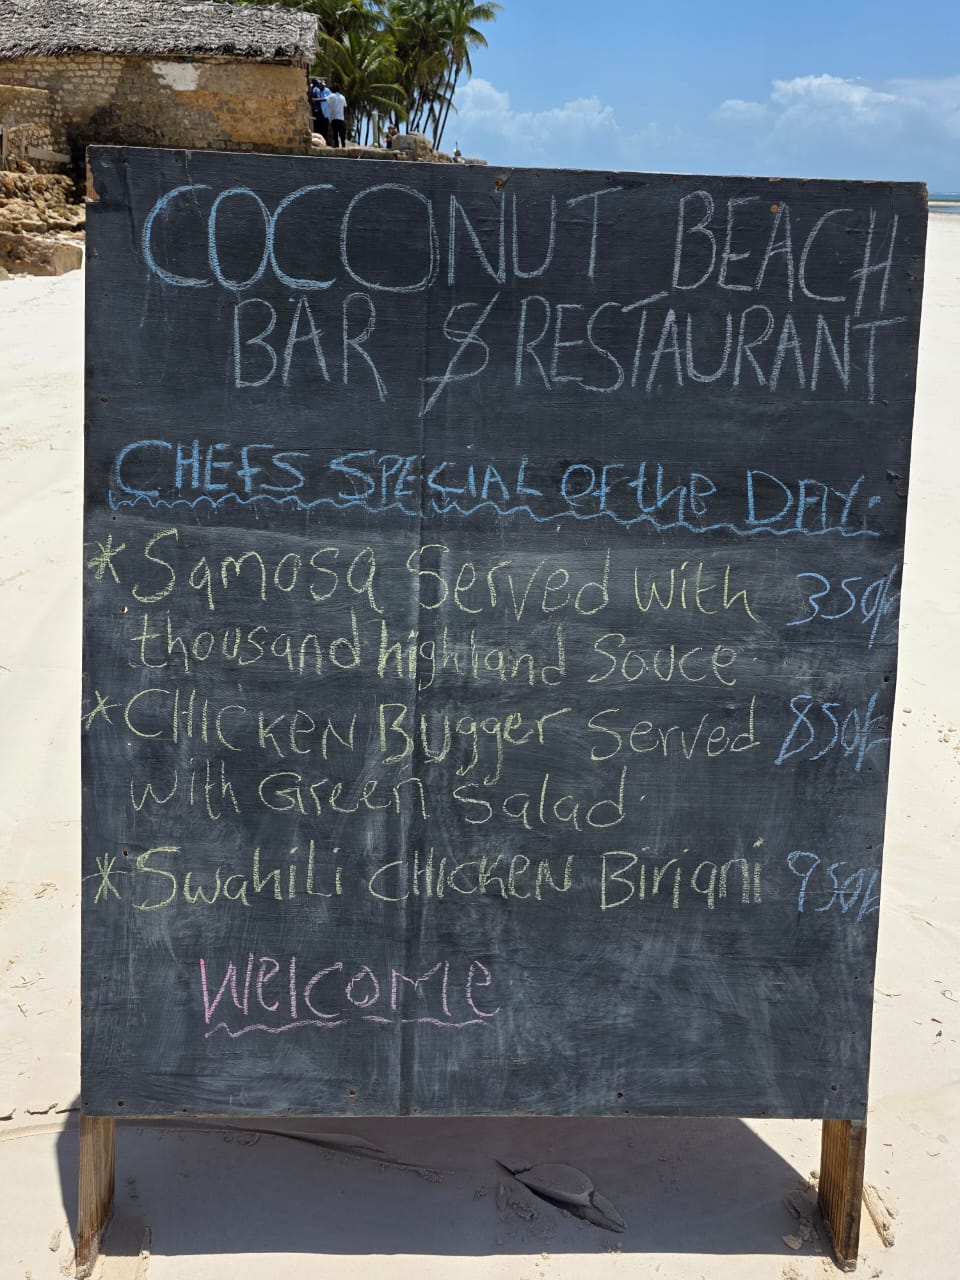 COCONUT BEACH
BAR & RESTAURANT
CHEFS SPECIAL OF the DAY:
* Samosa Served with 350/-
thousand highland Souce.
* CHICKEN Bugger Served 850/-
with Green Salad.
* Swahili CHICKEN Biriani 950/-
Welcome